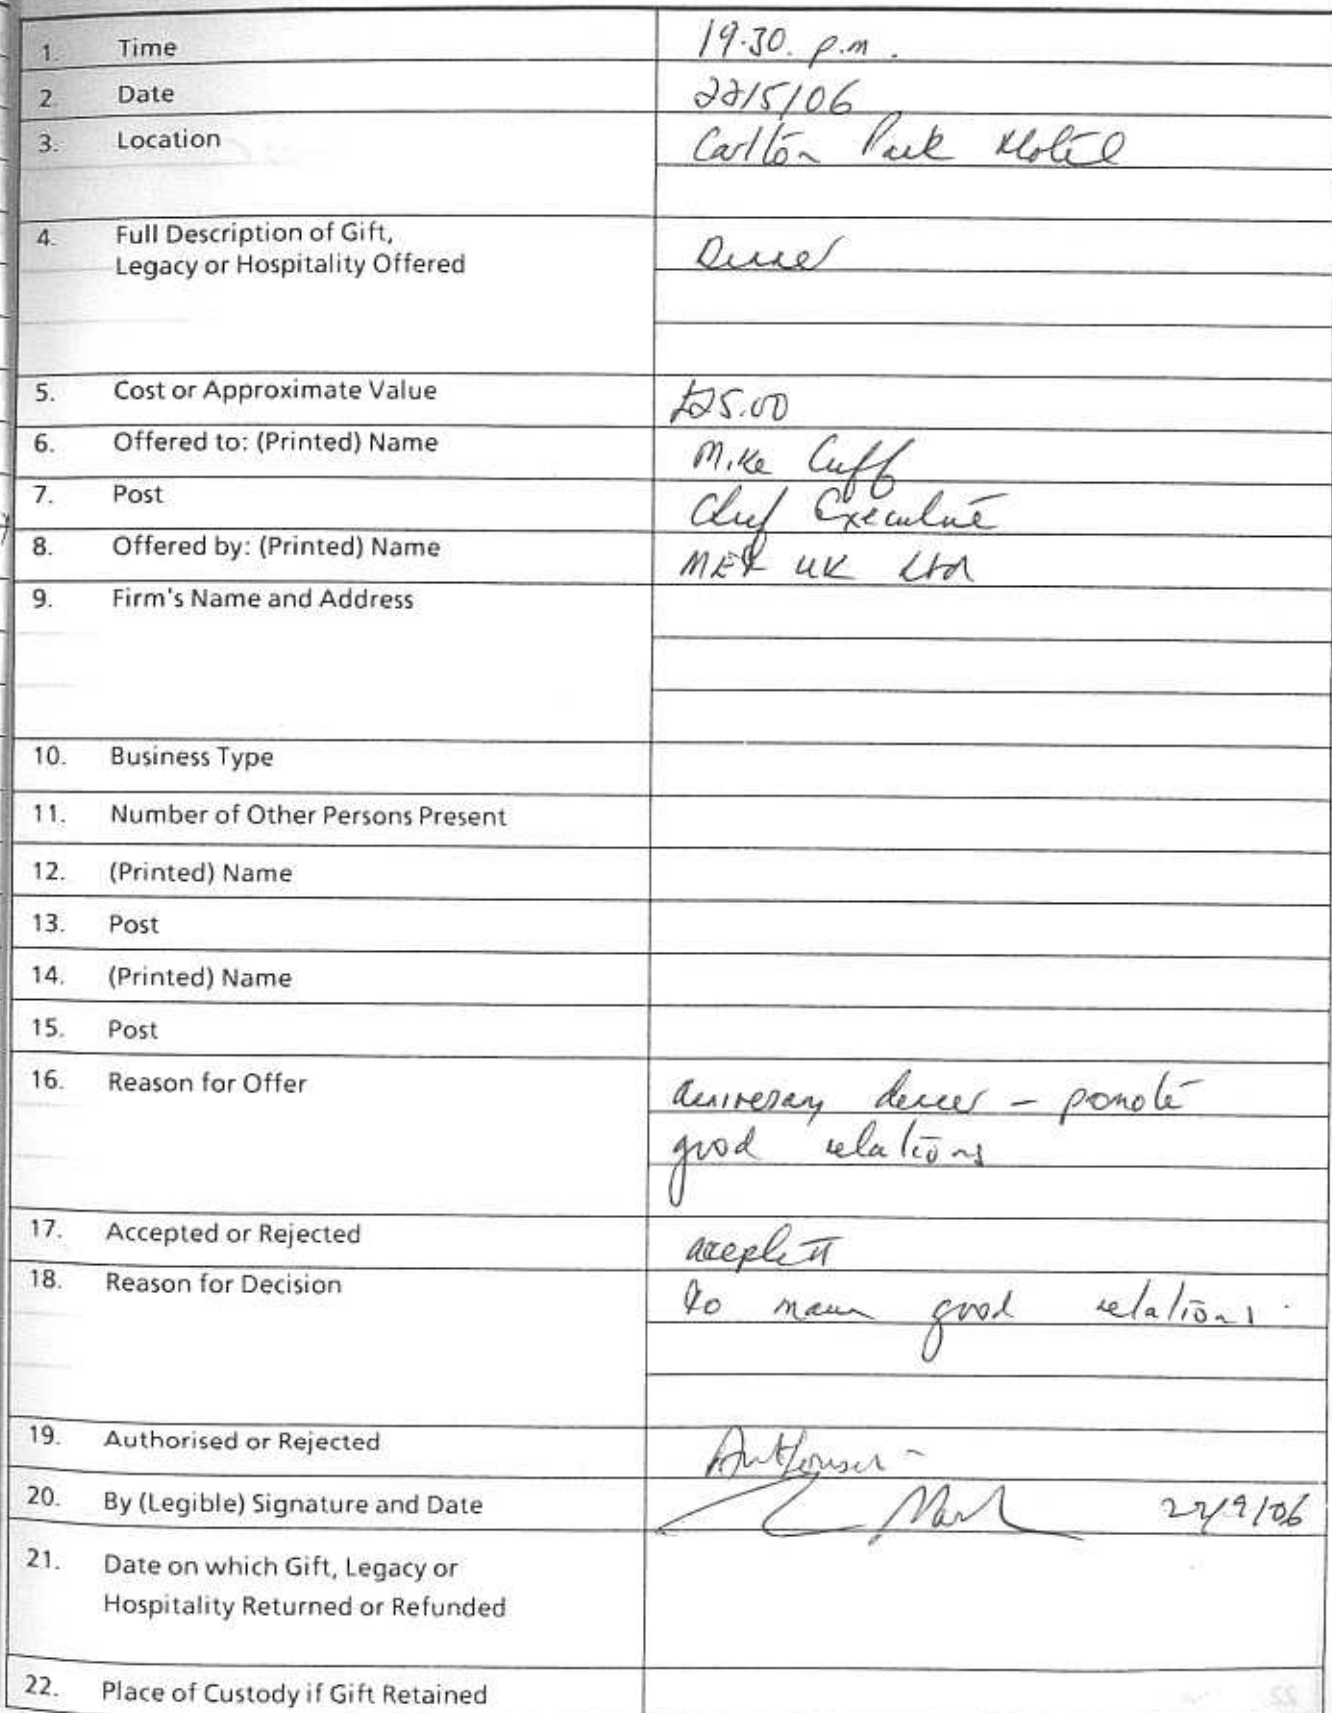 1. Time 19.30. p.m.
2. Date 22/5/06
3. Location Carlton Park Hotel
4. Full Description of Gift,
Legacy or Hospitality Offered Dinner
5. Cost or Approximate Value £25.00
6. Offered to: (Printed) Name Mike Cuff
7. Post Chief Executive
8. Offered by: (Printed) Name UK Ltd
9. Firm's Name and Address
10. Business Type
11. Number of Other Persons Present
12. (Printed) Name
13. Post
14. (Printed) Name
15. Post
16. Reason for Offer anniversary dinner - promote
good relations
17. Accepted or Rejected accepted
18. Reason for Decision to good relations.
19. Authorised or Rejected Authorised
20. By (Legible) Signature and Date
21. Date on which Gift, Legacy or
Hospitality Returned or Refunded
22. Place of Custody if Gift Retained